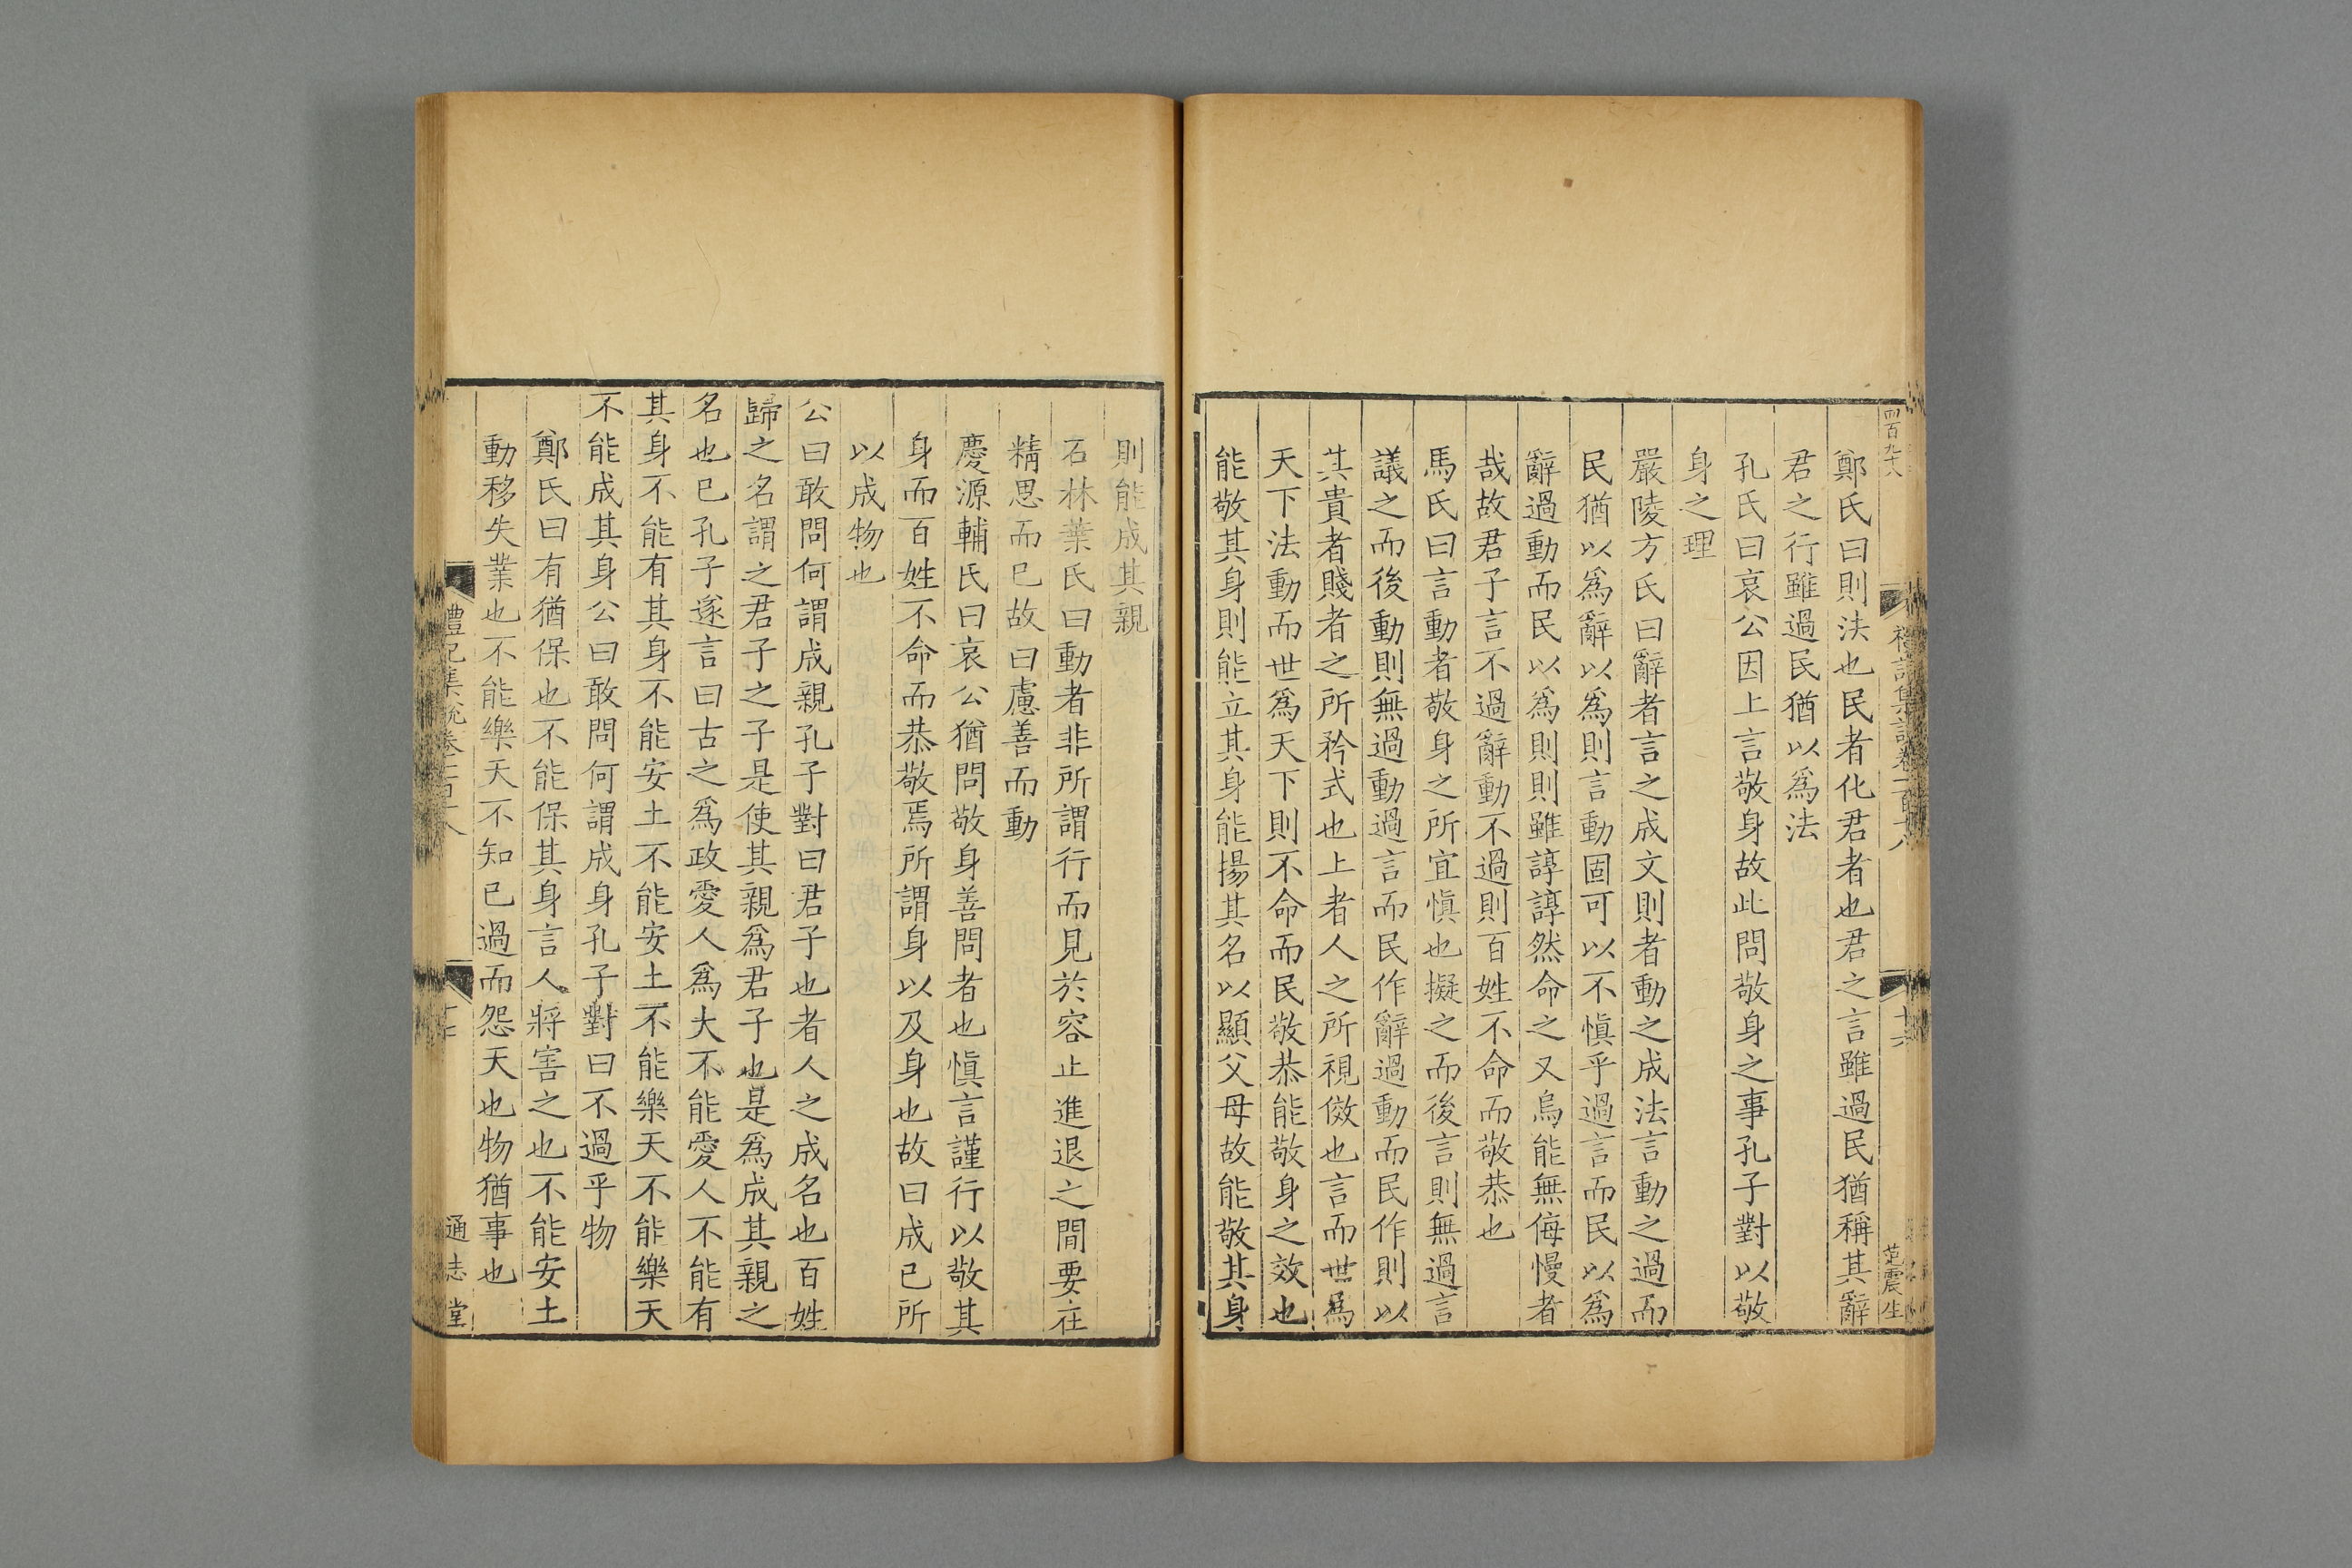 四百九十八
鄭氏曰則法也民者化君者也君之言雖過民猶稱其辭
君之行雖過民猶以爲法
孔氏曰哀公因上言敬身故此問敬身之事孔子對以敬
身之理
嚴陵方氏曰辭者言之成文則者動之成法言動之過而
民猶以爲辭以爲則言動固可以不慎乎過言而民以爲
辭過動而民以爲則則雖諄諄然命之又烏能無侮慢者
哉故君子言不過辭動不過則百姓不命而敬恭也
馬氏曰言動者敬身之所宜慎也擬之而後言則無過言
議之而後動則無過動過言而民作辭過動而民作則以
其貴者賤者之所矜式也上者人之所視傚也言而世爲
天下法動而世爲天下則不命而民敬恭能敬身之效也
能敬其身則能立其身能揚其名以顯父母故能敬其身
禮記集說卷一百十八
十六
震生
則能成其親
石林葉氏曰動者非所謂行而見於容止進退之間要在
精思而已故曰慮善而動
慶源輔氏曰哀公猶問敬身善問者也慎言謹行以敬其
身而百姓不命而恭敬焉所謂身以及身也故曰成已所
以成物也
公曰敢問何謂成親孔子對曰君子也者人之成名也百姓
歸之名謂之君子之子是使其親爲君子也是爲成其親之
名也已孔子遂言曰古之爲政愛人爲大不能愛人不能有
其身不能有其身不能安土不能安土不能樂天不能樂天
不能成其身公曰敢問何謂成身孔子對曰不過乎物
鄭氏曰有猶保也不能保其身言人將害之也不能安土
動移失業也不能樂天不知已過而怨天也物猶事也
禮記集說卷一百十八
十七
通志堂